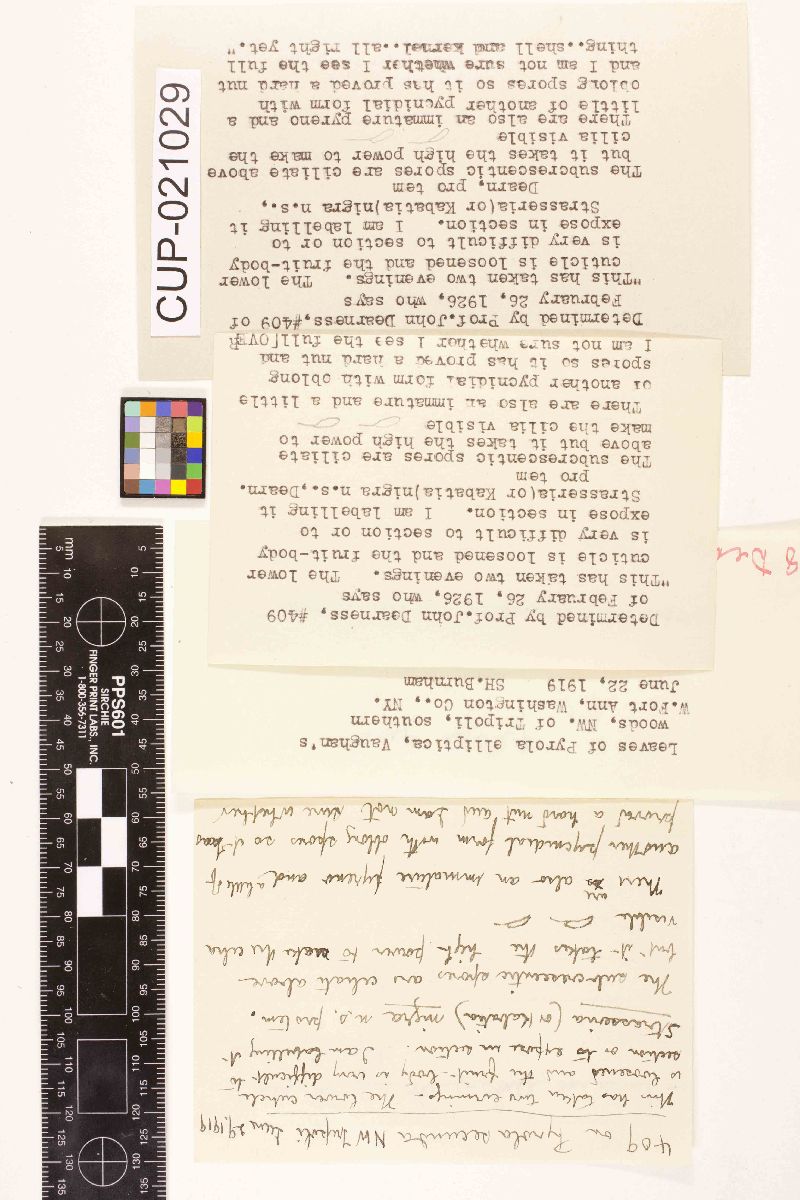 CUP-021029
Determined by Prof.John Dearness,#409 of
February 26, 1926, who says
"This has taken two evenings. The lower
cuticle is loosened and the fruit-body
is very difficult to section or to
expose in section. I am labelling it
Strasseria(or Kabatia)nigra n.s.,
Dearn, pro tem
The subcrescentic spores are ciliate above
but it takes the high power to make the
cilia visible
There are also an immature pyreno and a
little of another pycnidial form with
oblong spores so it has proved a hard nut
and I am not sure whether I see the full
thing..shell and kernel..all right yet."
Determined by Prof.John Dearness, #409
of February 26, 1926, who says
"This has taken two evenings. The lower
cuticle is loosened and the fruit-body
is very difficult to section or to
expose in section. I am labelling it
Strasseria(or Kabatia)nigra n.s.,Dearn.
pro tem
The subcrescentic spores are ciliate
above but it takes the high power to
make the cilia visible
There are also an immature and a little
of another pycnidial form with oblong
spores so it has proved a hard nut and
I am not sure whether I see the full[OVER
Leaves of Pyrola elliptica, Vaughan's
woods, NW. of Tripoli, southern
W.Fort Ann, Washington Co., NY.
June 22, 1919 SH.Burnham
409 on Pyrola secunda NW Tripoli June 29, 1919
This has taken two evenings - The lower cuticle
is loosened and the fruit-body is very difficult to
section or to expose in section. I am labelling it
Strasseria (or Kabatia) nigra n.s. pro tem.
The sub-crescentic spores are ciliate above
but it takes the high power to make the cilia
visible
There are also an immature pyreno and a little of
another pycnidial form with oblong spores so it has
proved a hard nut and I am not sure whether
PPS601
SIRCHIE
FINGER PRINT LABS., INC.
1-800-356-7311
mm
5
10
15
20
25
30
35
40
45
50
55
60
65
70
75
80
85
90
95
100
105
110
115
120
125
130
135